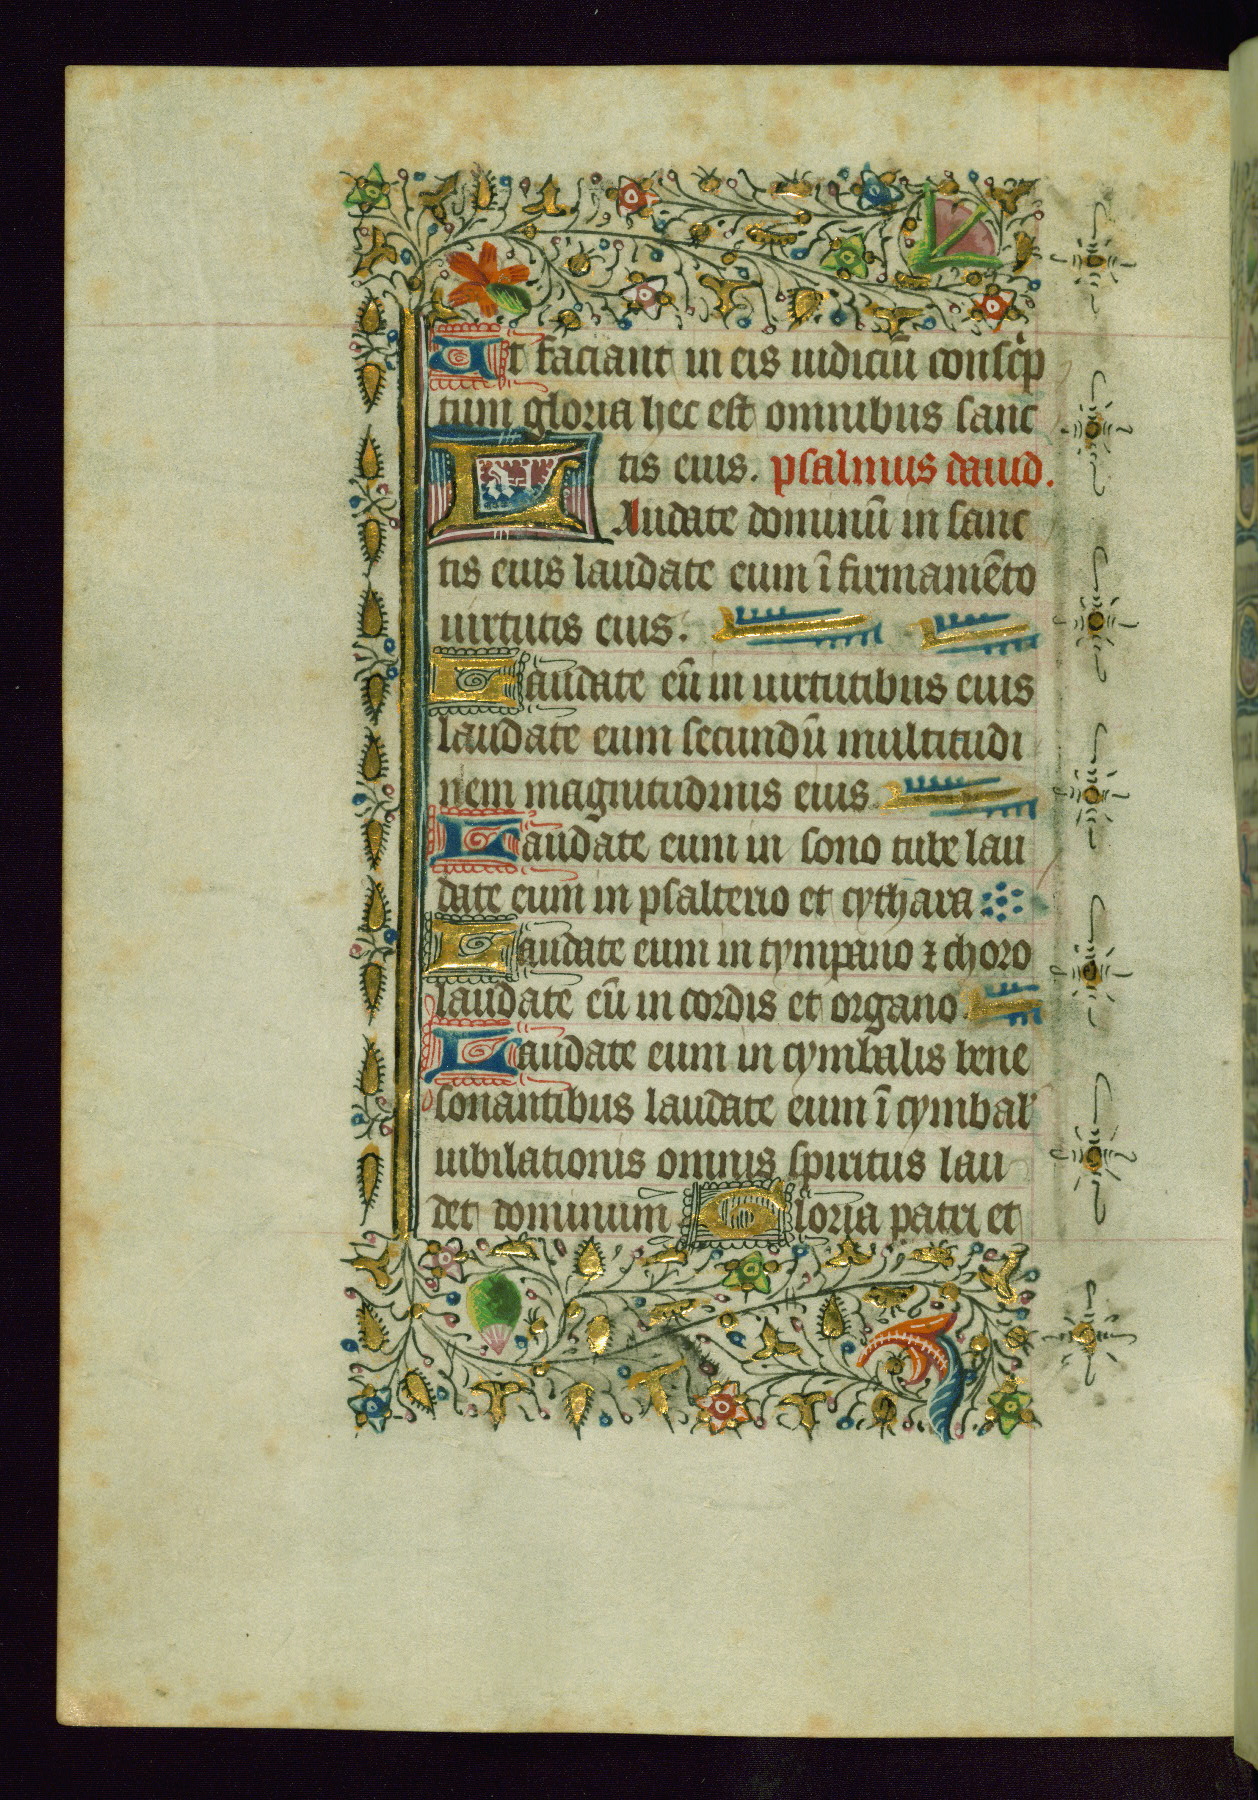 Ut faciant in eis iudiciū conscͥp
tum gloria hec est omnibus sanc
tis eius. psalmus dauid.
Laudate dominū in sanc
tis eius laudate eum ī firmamēto
uirtutis eius.
Laudate eū in uirtutibus eius
laudate eum secundū multitudi
nem magnitudinis eius
Laudate eum in sono tube lau
date eum in psalterio et cythara
Laudate eum in tympano ⁊ choro
laudate eū in cordis et organo.
Laudate eum in cymbalis bene
sonantibus laudate eum ī cymbal'
iubilationis omnis spiritus lau
det dominum Gloria patri et